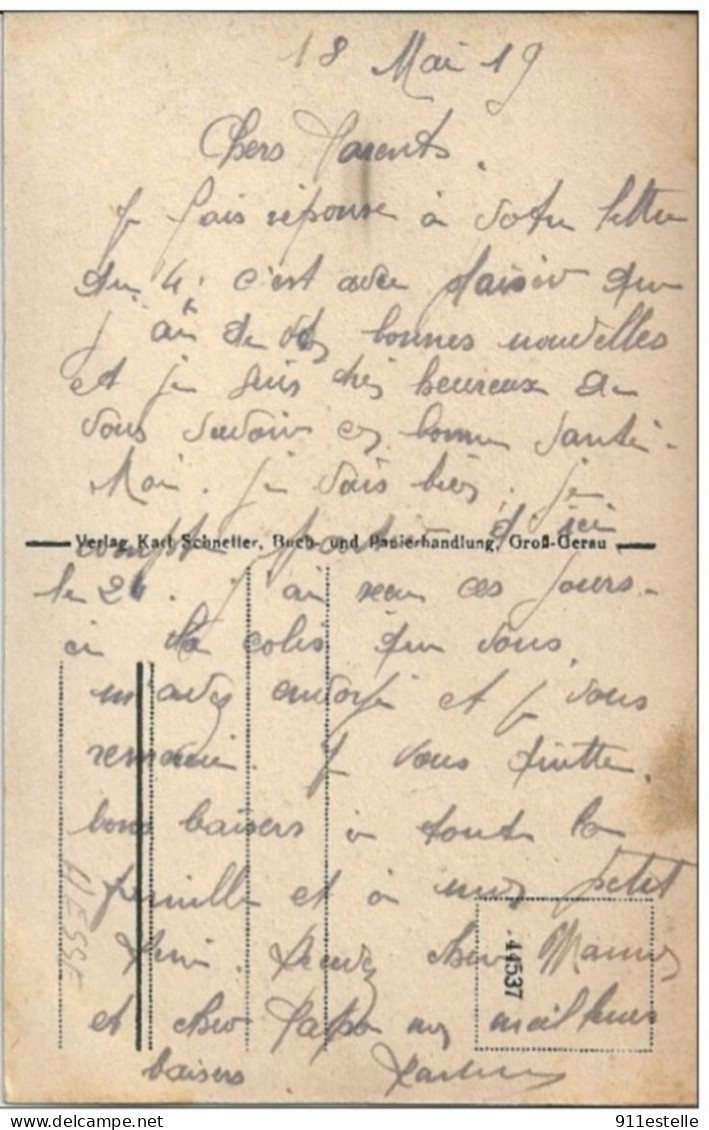 18 Mai 19
Chers Parents.
Je fais réponse à votre lettre
du 4. c'est avec plaisir que
j'ai de vos bonnes nouvelles
et je suis très heureux de
vous savoir en bonne santé.
Moi. je vais bien. je
compte partir d'ici
Verlag Karl Schnetter, Buch- und Papierhandlung, Groß-Gerau
le 24. j'ai recu ces jours
ci le colis que vous
m'avez envoyé et je vous
remercie. Je vous quitte.
bons baisers à toute la
famille et à mon petit
chere Maman
et cher Papa mes meilleurs
baisers.
HESSE
44537
911estelle